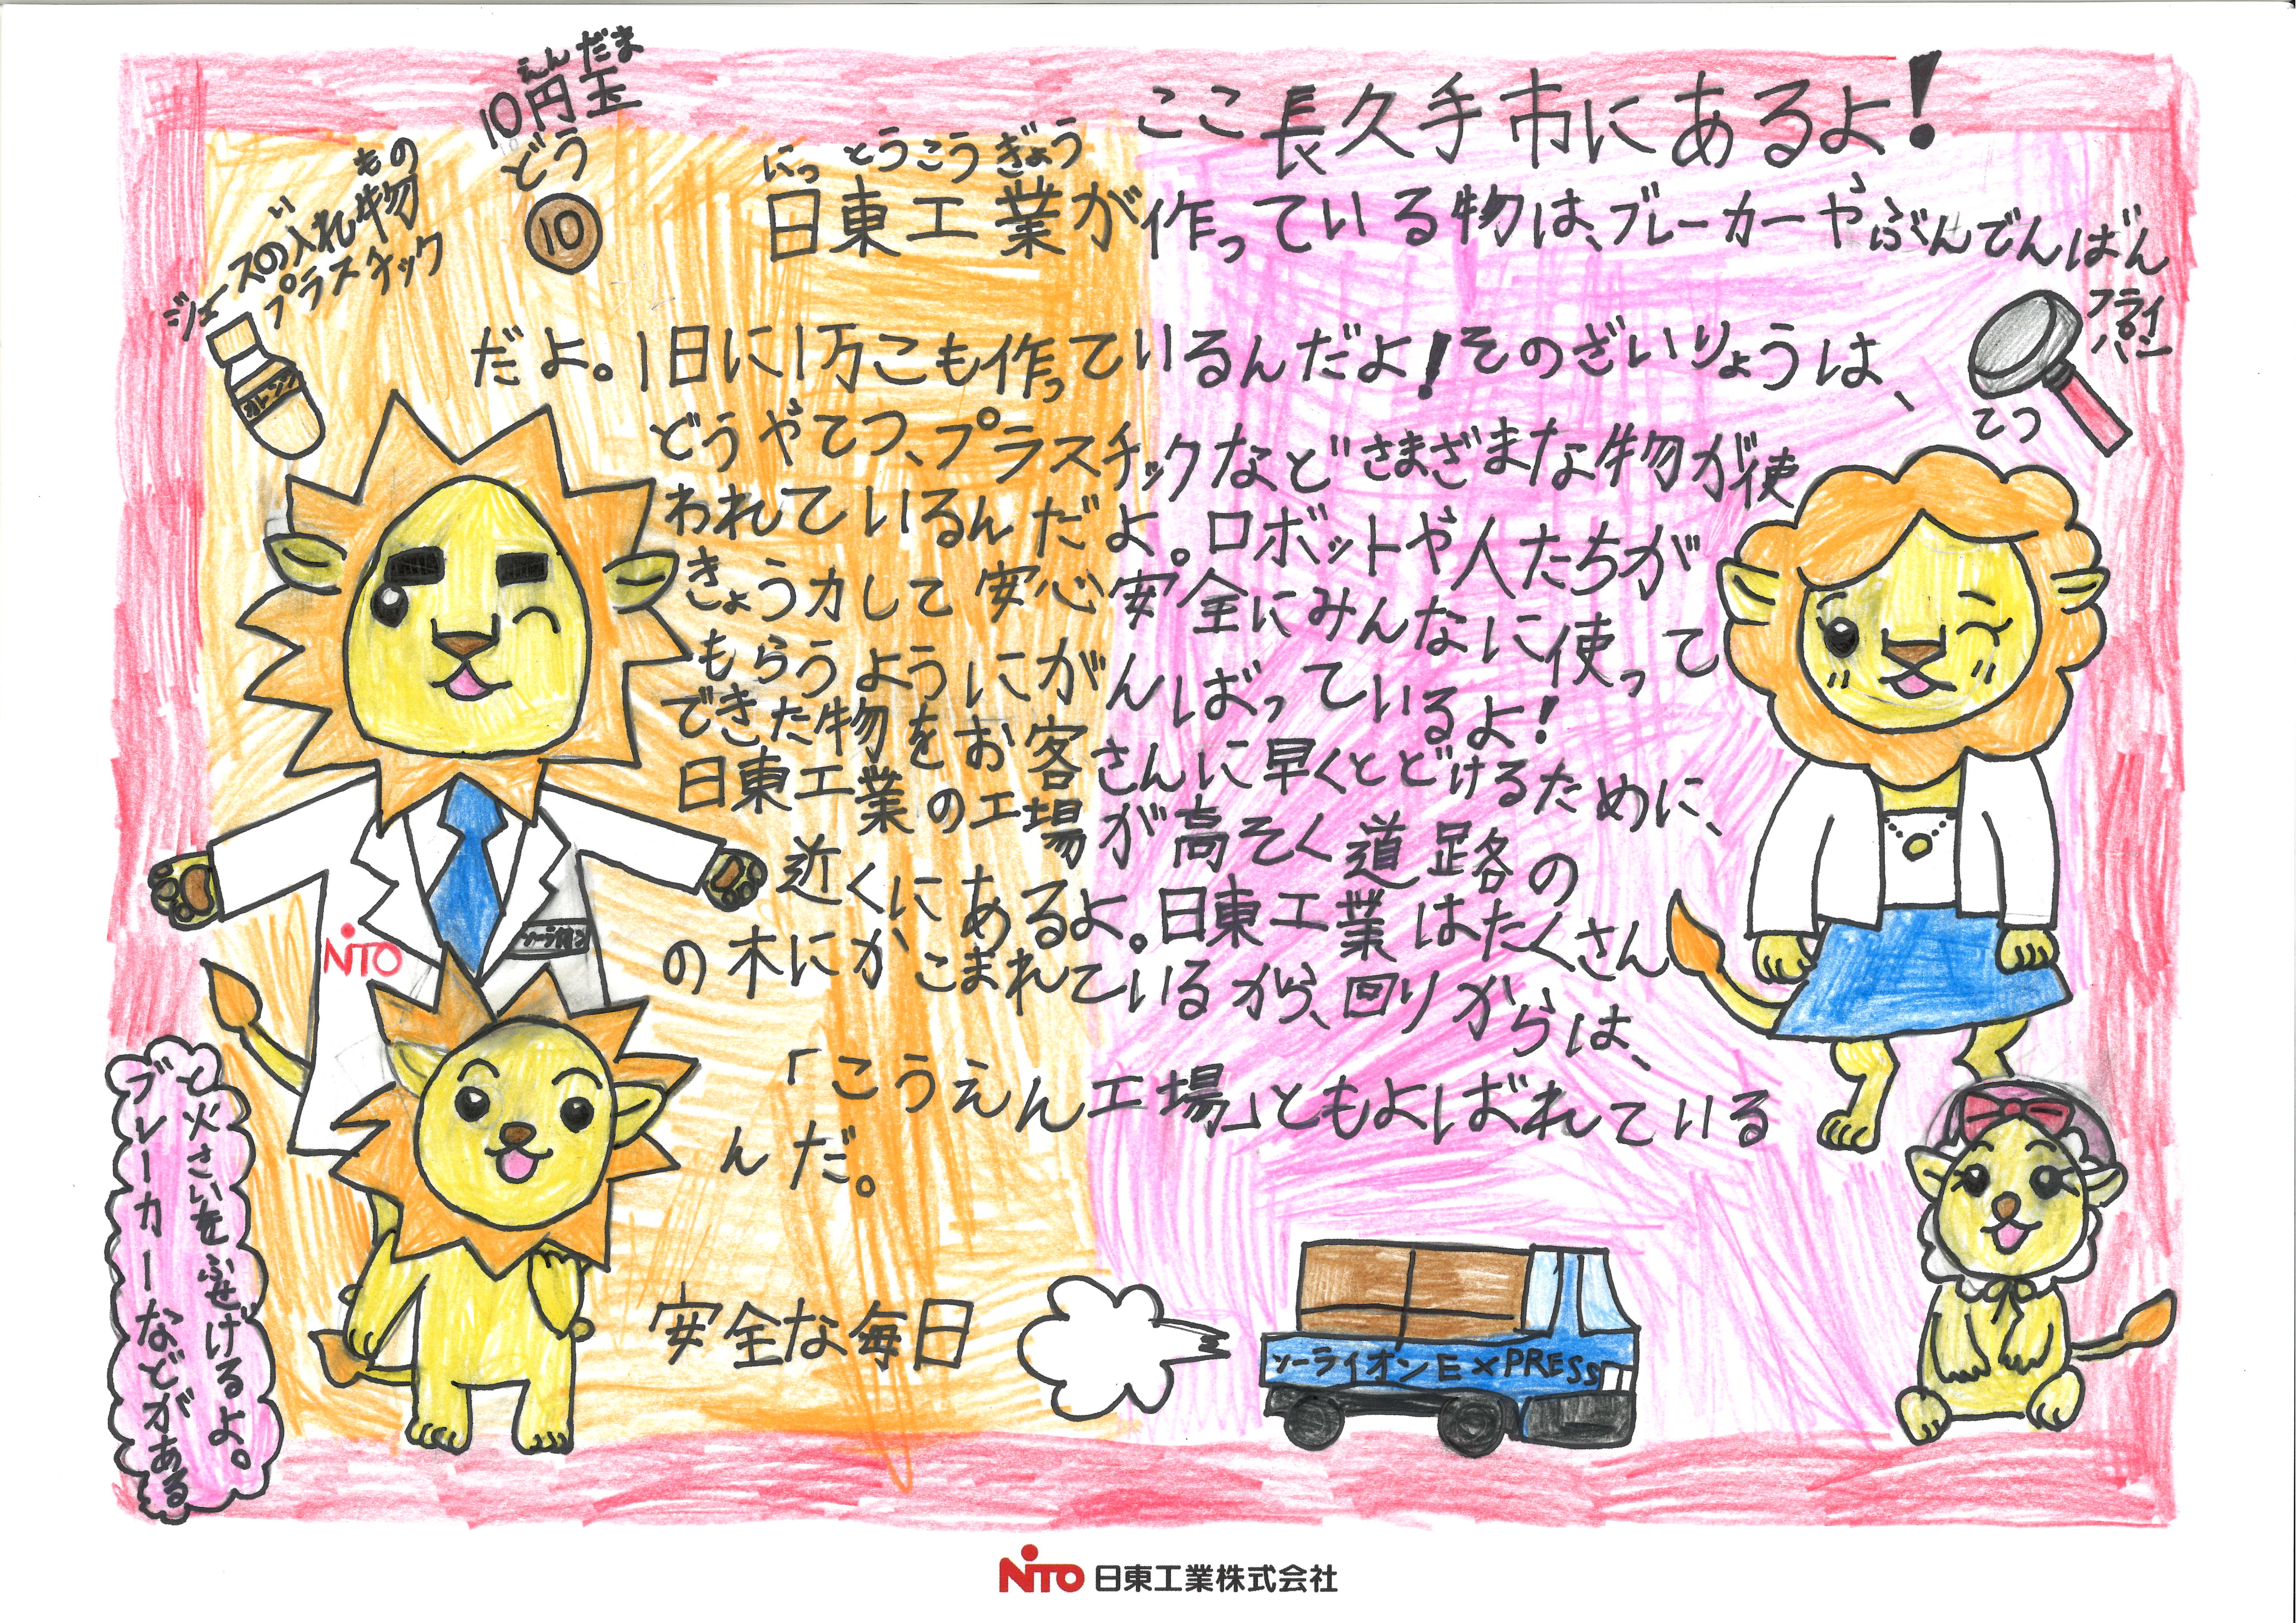 ここ長久手市にあるよ!
にっとうこうぎょう
日東工業が作っている物は、ブレーカーやぶんでんばん
だよ。1日に1万こも作っているんだよ!そのざいりょうは、
どうやてつ、プラスチックなどさまざまな物が使
われているんだよ。ロボットや人たちが
きょう力して安心安全にみんなに使って
もらうようにがんばっているよ!
できた物をお客さんに早くとどけるために、
日東工業の工場が高そく道路の
近くにあるよ。日東工業はたくさん
の木にかこまれているから、回りからは、
「こうえん工場」ともよばれている
んだ。
えんだま
10円玉
どう
10
い もの
ジュースの入れ物
プラスチック
オレンジ
フライ
パン
てつ
NiTO
ソーライオン
ブレーカーなどがある
と火さいをふせげるよ。
安全な毎日
ソーライオンEXPRESS
NITO 日東工業株式会社